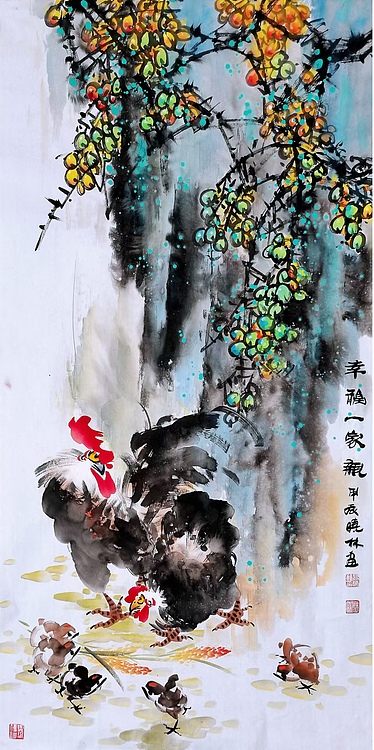 幸福一家亲 甲辰晓林画